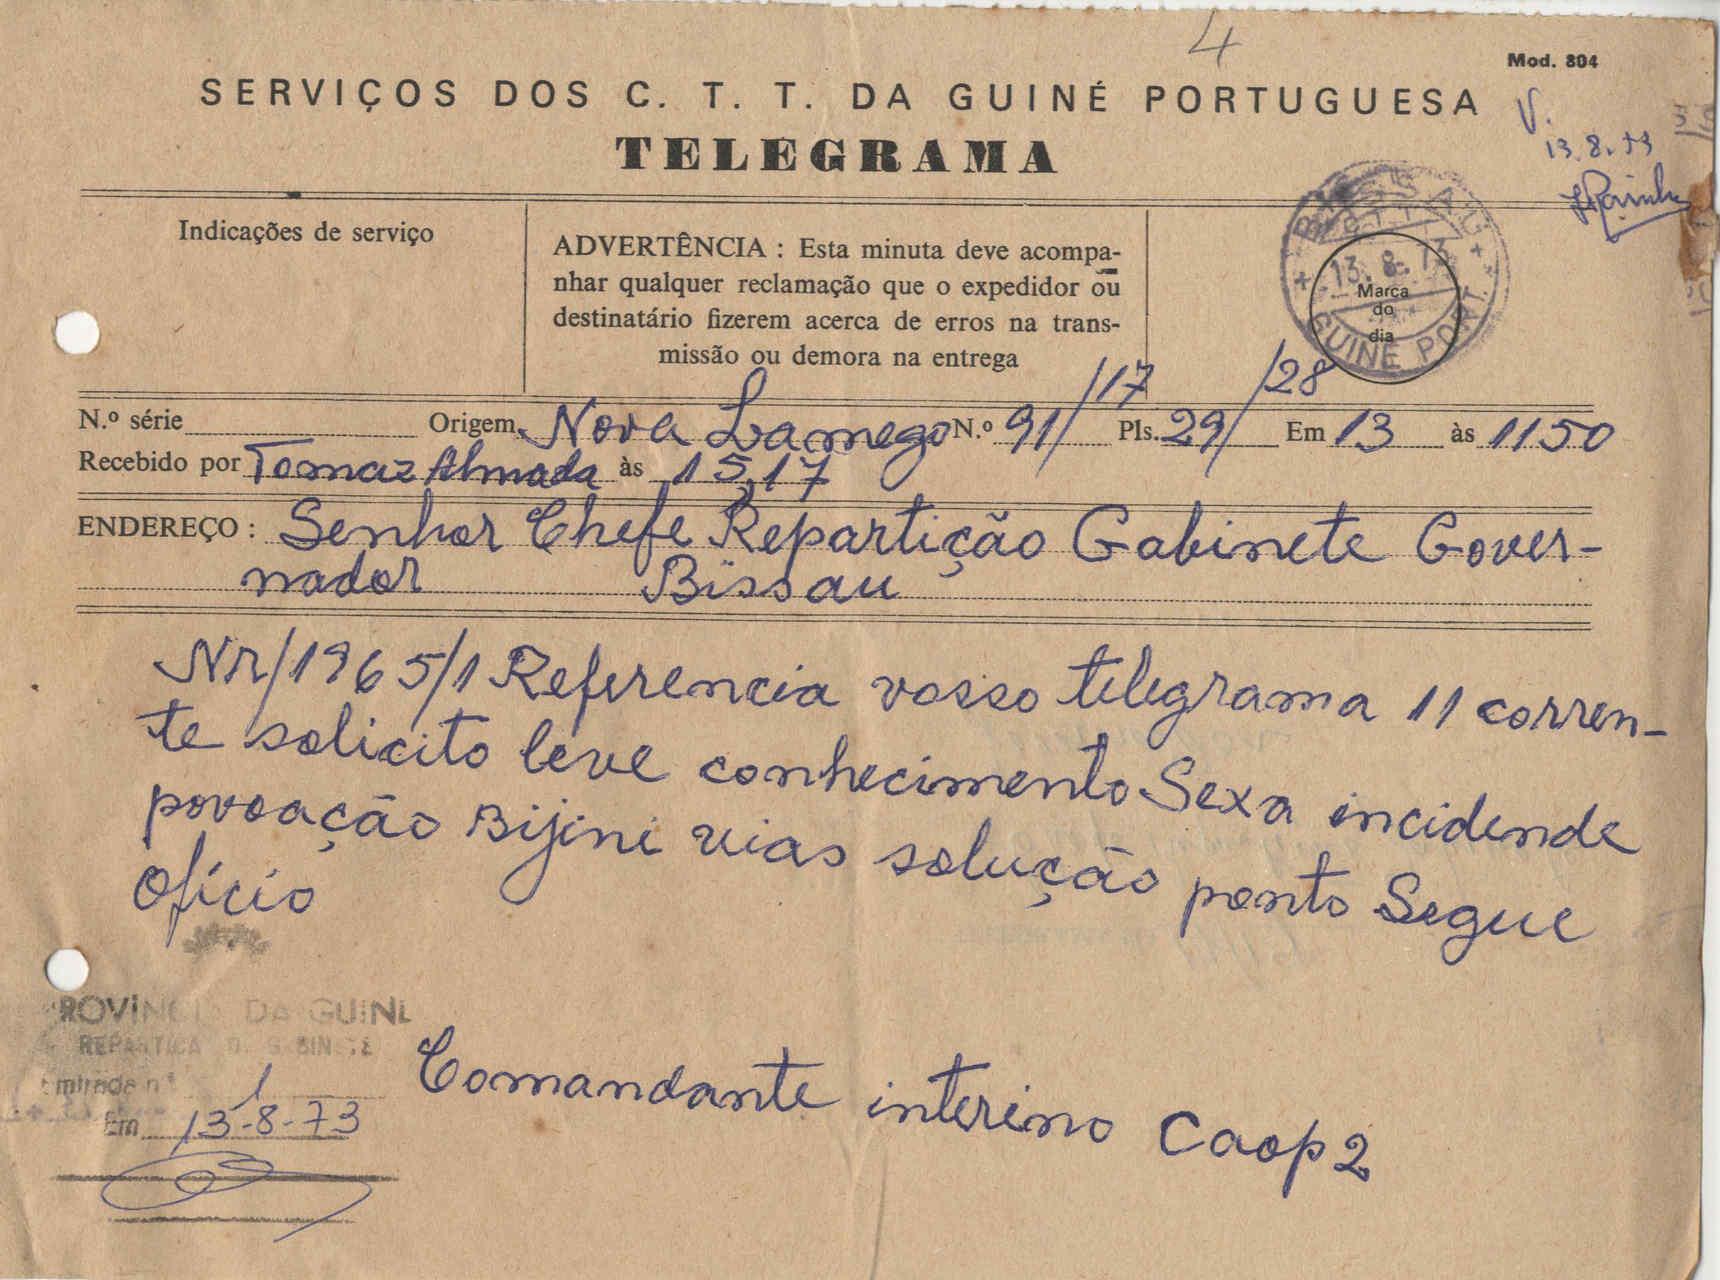 4
Mod. 804
SERVIÇOS DOS C. T. T. DA GUINÉ PORTUGUESA
TELEGRAMA
V.
13.8.73
Indicações de serviço
ADVERTÊNCIA : Esta minuta deve acompa-
nhar qualquer reclamação que o expedidor ou
destinatário fizerem acerca de erros na trans-
missão ou demora na entrega
BISSAU
C T T
13. 8. 73
GUINÉ PORT.
Marca
do
dia
N.º série Origem Nova Lamego N.º 91/17 Pls. 29/28 Em 13 às 1150
Recebido por Tomaz Almada às 15,17
ENDEREÇO : Senhor Chefe Repartição Gabinete Gover-
nador Bissau
Nr/1965/1 Referencia vosso telegrama 11 corren-
te solicito leve conhecimento Sexa incidende
povoação Bijini vias solução ponto Segue
Ofício
ROVINCIA DA GUINÉ
REPARTIÇÃ D. GABINETE
ntrada nº
Em 13-8-73
Comandante interino Caop 2